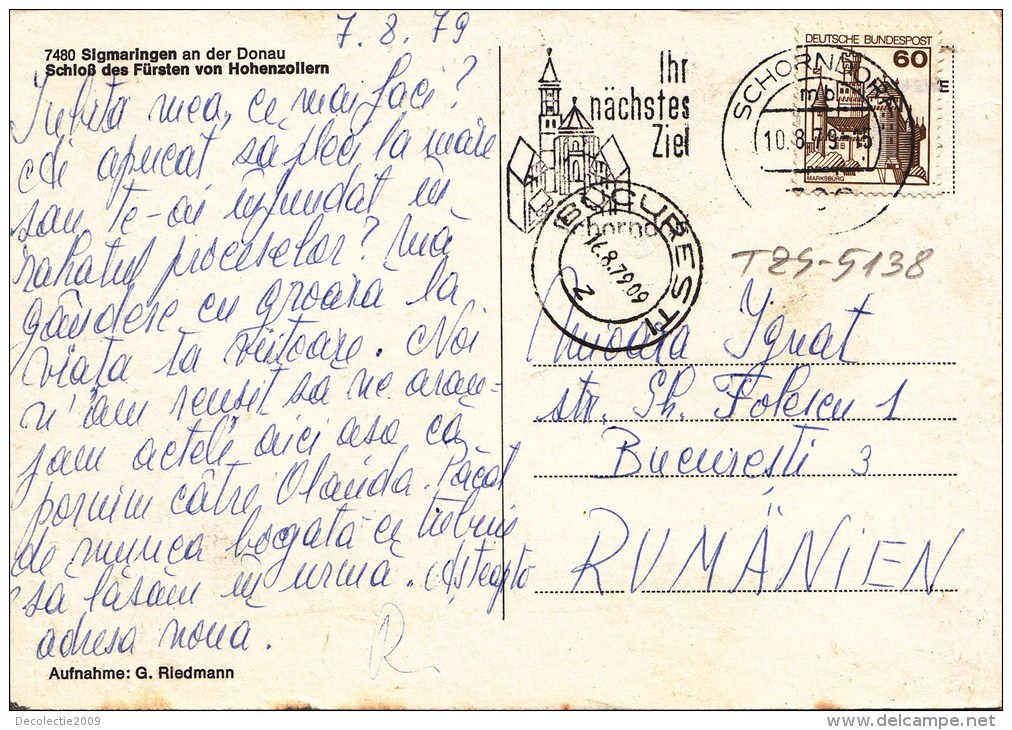 7.8.79
7480 Sigmaringen an der Donau
Schloß des Fürsten von Hohenzollern
Iubita mea, ce mai faci?
apucat să pleci la mare
sau te-ai înfundat în
rahatul proceselor? Mă
gândesc cu groază la
viața ta viitoare. Noi
n'am reușit să ne aran-
jam actele aici așa că
pornim către Olanda. Păcat
de munca bogată ce trebuie
să lăsăm în urmă. Aștept
adresa noua.
R
Aufnahme: G. Riedmann
Ihr
nächstes
Ziel
SCHORNDORF
mb
10.8.79-15
DEUTSCHE BUNDESPOST
60
MARKSBURG
BUCUREȘTI
16.8.79 09
2
TZS-5138
Ignat
str. Gh. Folescu 1
București 3
RUMÄNIEN
Decolectie2009
delcampe.net